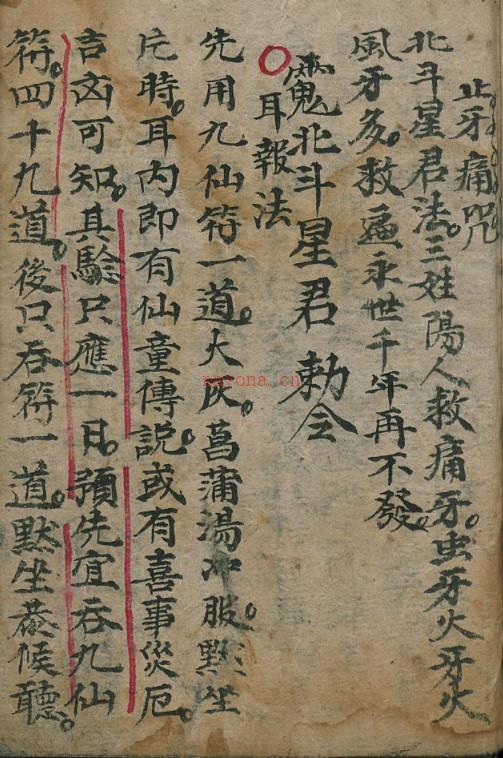 止牙痛咒
北斗星君法。三姓陽人救痛牙。虫牙火牙火
風牙多。救逼永世千年再不發。
北斗星君勅令
耳報法
先用九仙符一道。火灰。菖蒲湯冲服。默坐
片時。耳內即有仙童傳說。或有喜事災厄。
吉凶可知。其驗只應一日。預先宜吞九仙
符。四十九道。後只吞符一道。默坐恭候聽。
nayona.cn